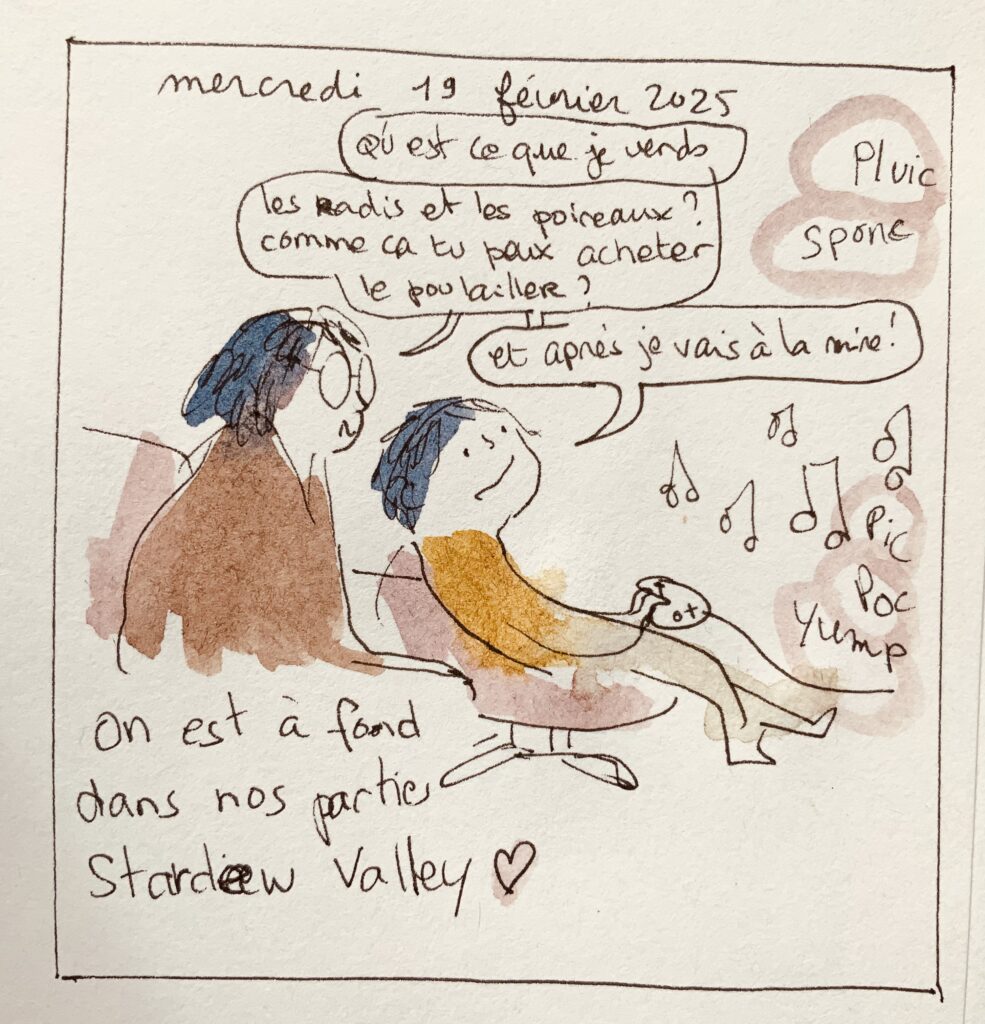 mercredi 19 février 2025
Qu'est ce que je vends
les radis et les poireaux?
comme ça tu peux acheter
le poulailler?
et après je vais à la mine!
Pluic
sponc
Pic
Poc
Yump
On est à fond
dans nos parties
Stardew Valley ♡